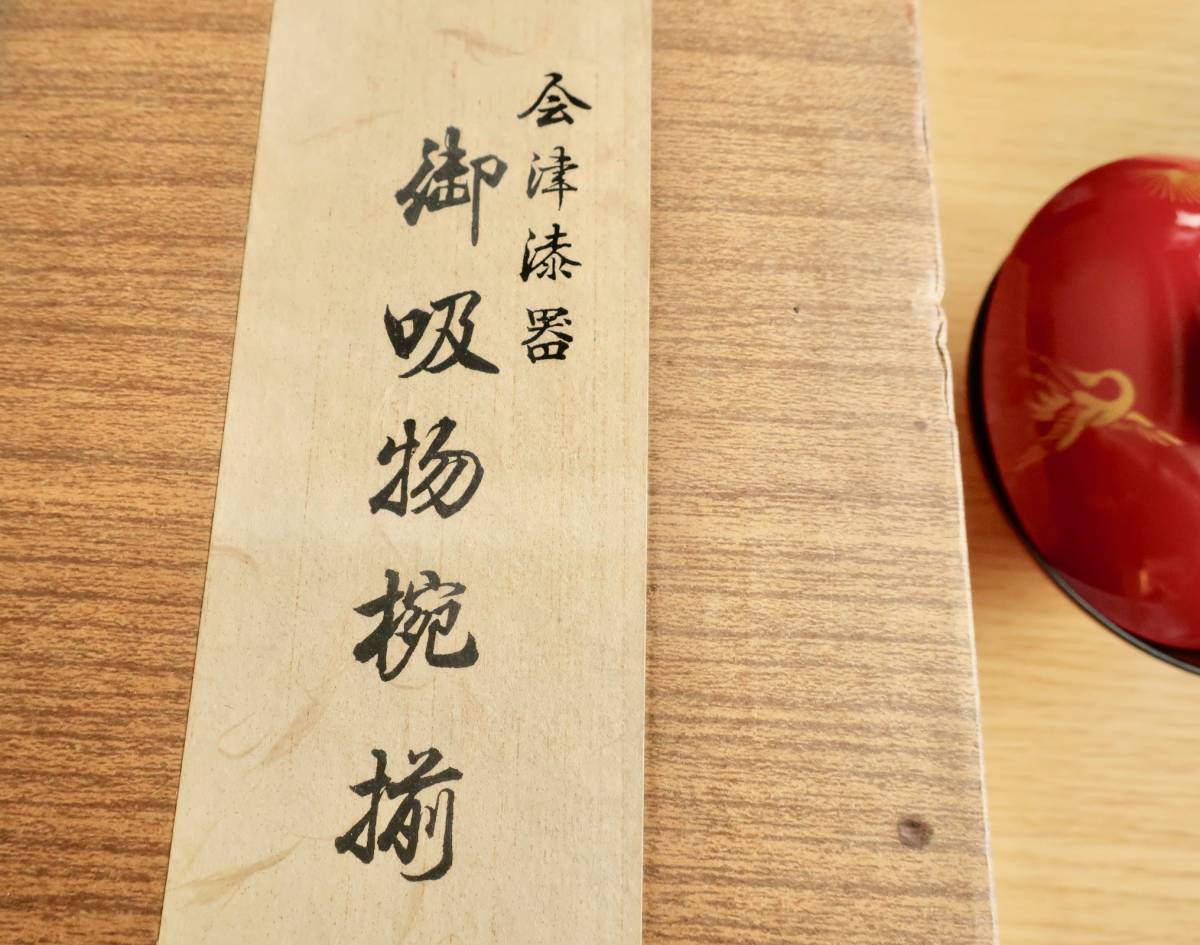 会津漆器
御吸物椀揃